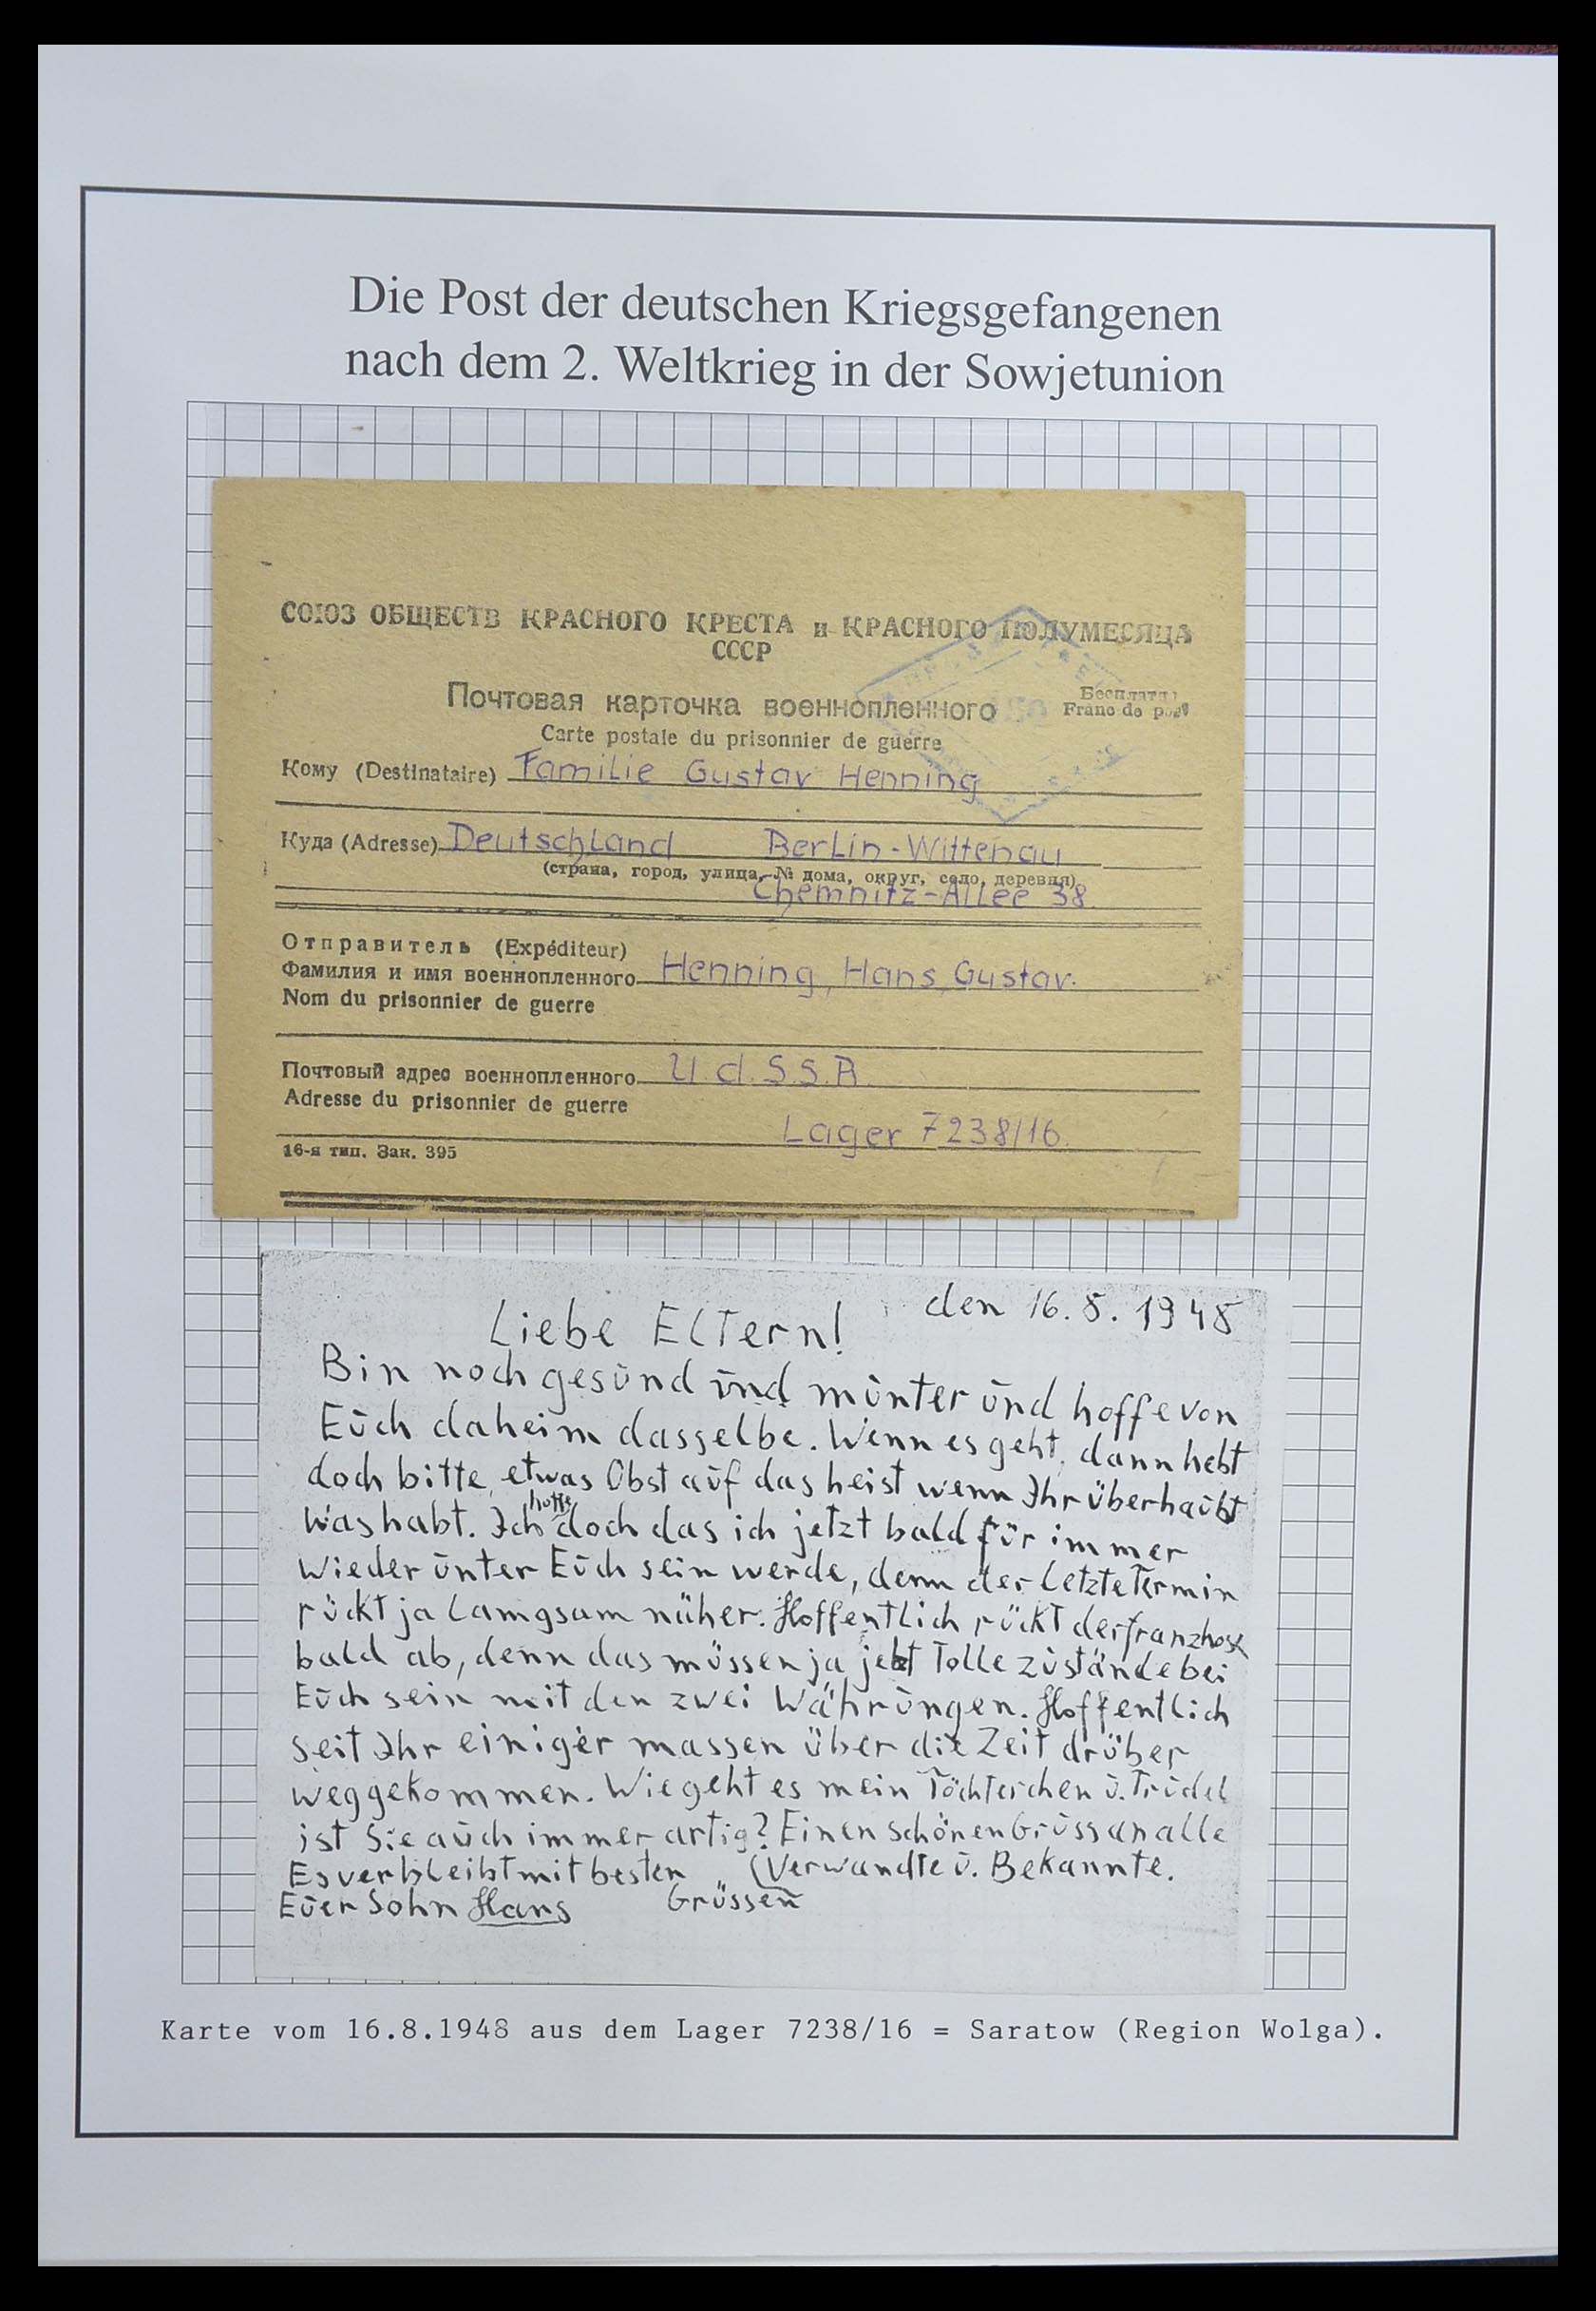 Die Post der deutschen Kriegsgefangenen
nach dem 2. Weltkrieg in der Sowjetunion
СОЮЗ ОБЩЕСТВ КРАСНОГО КРЕСТА и КРАСНОГО ПОЛУМЕСЯЦА
СССР
Почтовая карточка военнопленного
Бесплатно
Franc de port
Carte postale du prisonnier de guerre
Кому (Destinataire) Familie Gustav Henning
Куда (Adresse) Deutschland Berlin-Wittenau
(страна, город, улица, № дома, округ, село, деревня)
Chemnitz-Allee 38.
Отправитель (Expéditeur)
Фамилия и имя военнопленного Henning, Hans, Gustav.
Nom du prisonnier de guerre
Почтовый адрес военнопленного U.d.S.S.R.
Adresse du prisonnier de guerre
Lager 7238/16.
16-я тип. Зак. 395
den 16.8.1948
Liebe Eltern!
Bin noch gesund und munter und hoffe von
Euch daheim dasselbe. Wenn es geht, dann hebt
doch bitte, etwas Obst auf das heist wenn Ihr überhaubt
was habt. Ich hoffe doch das ich jetzt bald für immer
wieder unter Euch sein werde, denn der letzte Termin
rückt ja lamgsam näher. Hoffentlich rückt der franzhose
bald ab, denn das müssen ja jetzt Tolle zustände bei
Euch sein mit den zwei Währungen. Hoffentlich
seit Ihr einiger massen über die Zeit drüber
weggekommen. Wie geht es mein Töchterchen u. Trudel
ist Sie auch immer artig? Einen schönen Gruss an alle
Es verbleibt mit besten (Verwandte u. Bekannte.
Euer Sohn Hans Grüssen
Karte vom 16.8.1948 aus dem Lager 7238/16 = Saratow (Region Wolga).